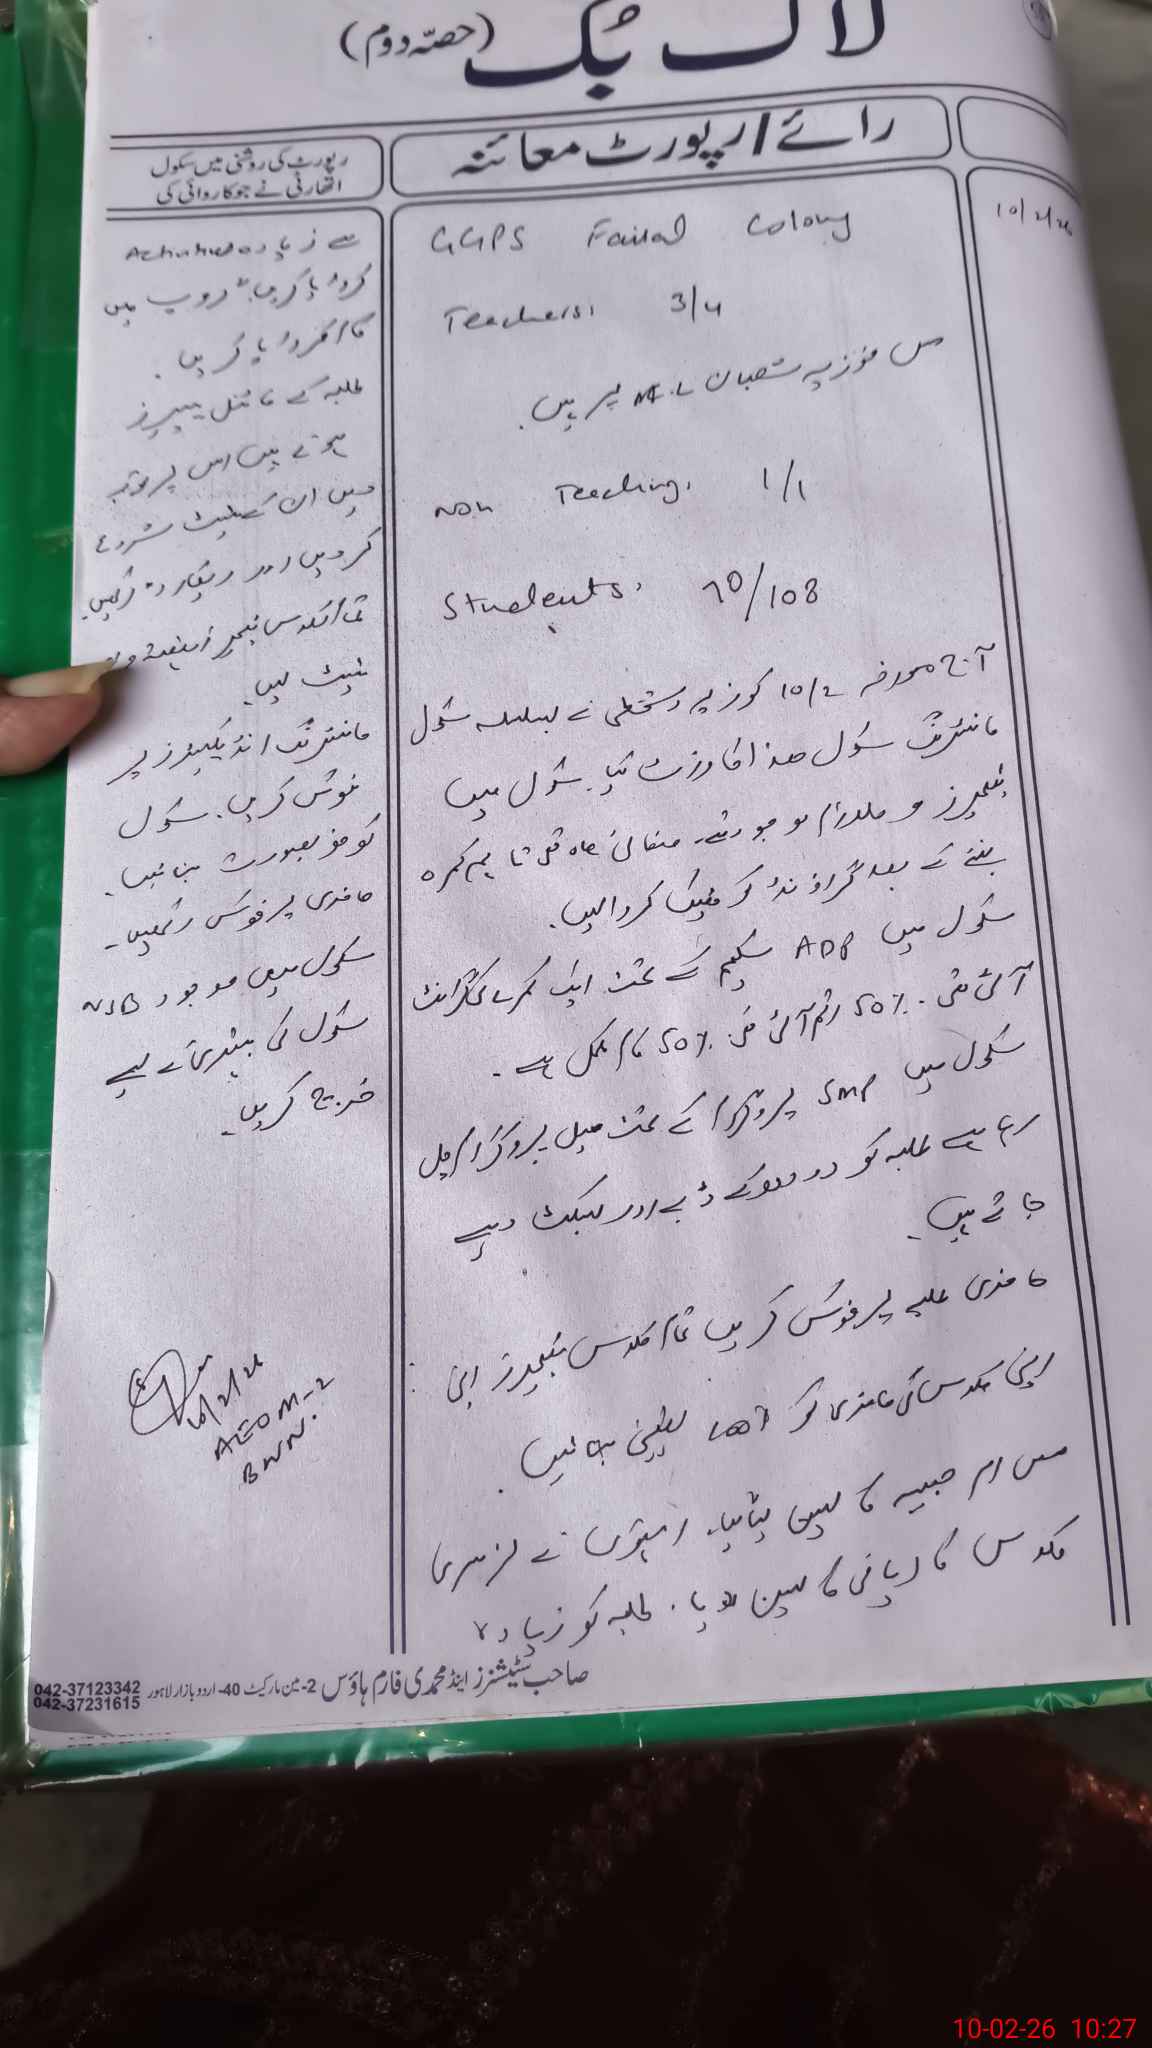 لاگ بک (حصہ دوم)
رائے / رپورٹ معائنہ
رپورٹ کی روشنی میں سکول
اتھارٹی نے جو کاروائی کی
10/2/26
GGPS Faisal Colony
Teachers: 3/4
مس فوزیہ شعبان M.L پر ہیں۔
Non Teaching: 1/1
Students: 70/108
آج مورخہ 10/2 کو زیر دستخطی نے بسلسلہ سکول
مانیٹرنگ سکول ھذا کا وزٹ کیا۔ سکول میں
ٹیچرز و ملازم موجود تھے۔ صفائی تھی تا ہم کمرہ
بننے کے بعد گراؤنڈ کو ٹھیک کروا لیں۔
سکول میں ADP سکیم کے تحت ایک کمرے کی گرانٹ
آئی تھی۔ 50% رقم آئی تھی۔ 50% کام مکمل ہے۔
سکول میں SMP پروگرام کے تحت میل پروگرام چل
رہا ہے طلبہ کو دودھ کے ڈبے اور بسکٹ دیے
جاتے ہیں۔
حاضری طلبہ پر فوکس کریں تمام کلاس ٹیچرز اپنی
اپنی کلاس کی حاضری کو 100% یقینی بنائیں۔
مس ام حبیبہ کا لیسن لیا۔ انہوں نے نرسری
کلاس کا ریاضی کا لیسن دیا۔ طلبہ کو زیادہ
سے زیادہ Activities
کروایا کریں۔ گروپ میں
کام کروایا کریں۔
طلبہ کے فائنل پیپرز
ہونے ہیں اس پر توجہ
دیں ان کے ٹیسٹ شروع
کر دیں اور ریکارڈ رکھیں۔
تمام کلاس ٹیچرز
ٹیسٹ لیں۔
مانیٹرنگ انڈیکیٹرز پر
فوکس کریں۔ سکول
کو خوبصورت بنائیں۔
حاضری پر فوکس رکھیں۔
سکول میں موجود NSB
سکول کی بہتری کے لیے
خرچ کریں۔
10/2/26
AEO M-2
BWN.
صاحب سٹیشنرز اینڈ محمدی فارم ہاؤس 2-مین مارکیٹ 40-اردو بازار لاہور 042-37123342
042-37231615
10-02-26 10:27